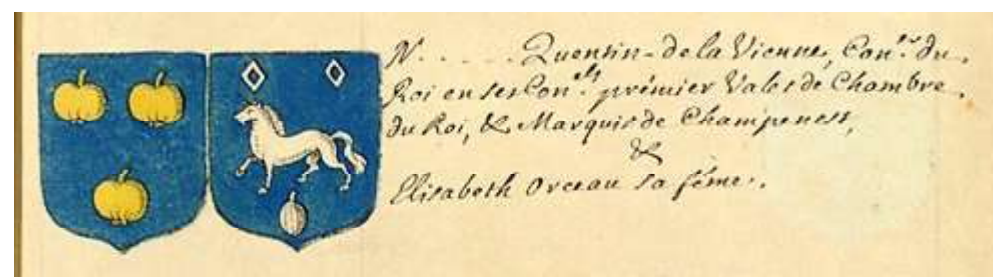 N. . . . . Quentin-de la Vienne, Con.er du.
Roi en ses Con.els prémier Valet de Chambre.
du Roi, & Marquis de Champcenest,
&
Elisabeth Orceau sa féme.